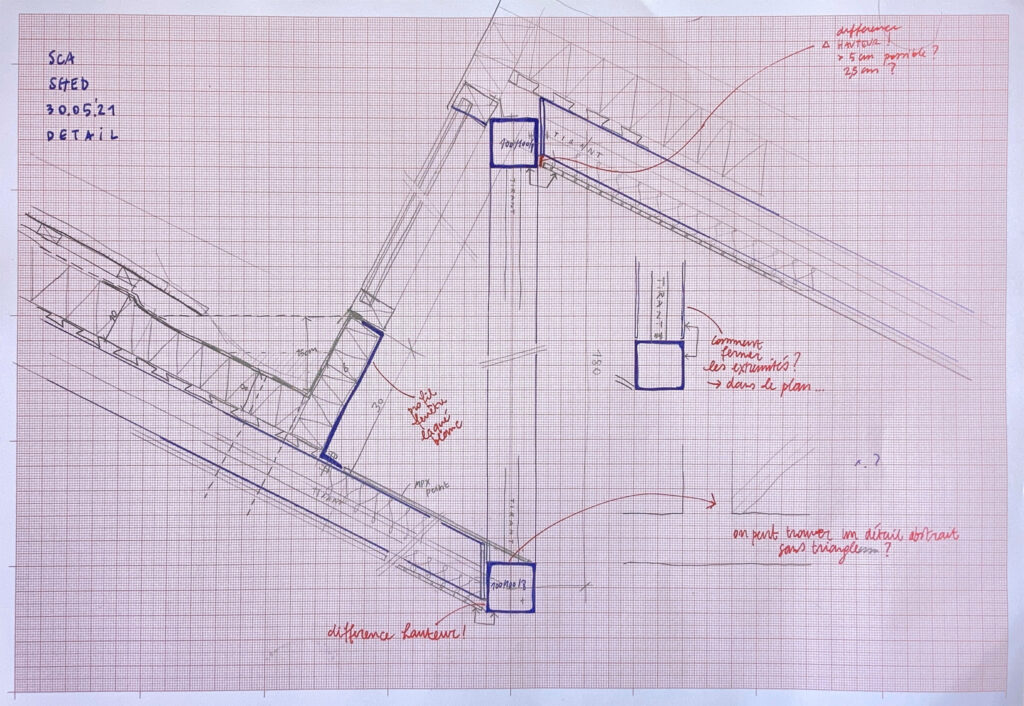 SCA
SHED
30.05.'21
DETAIL
difference
△ HAUTEUR !
> 5 cm possible ?
2,5 cm ?
100/100/3
TIRANT
TIRANT
TIRANTS
comment
fermer
les extremités ?
→ dans le plan...
180
15cm
8
30
profil
fenêtre
laqué
blanc
MPX
peint
TIRANT
TIRANT
100/100/3
?
on peut trouver un détail abstrait
sans triangle ?
difference hauteur !